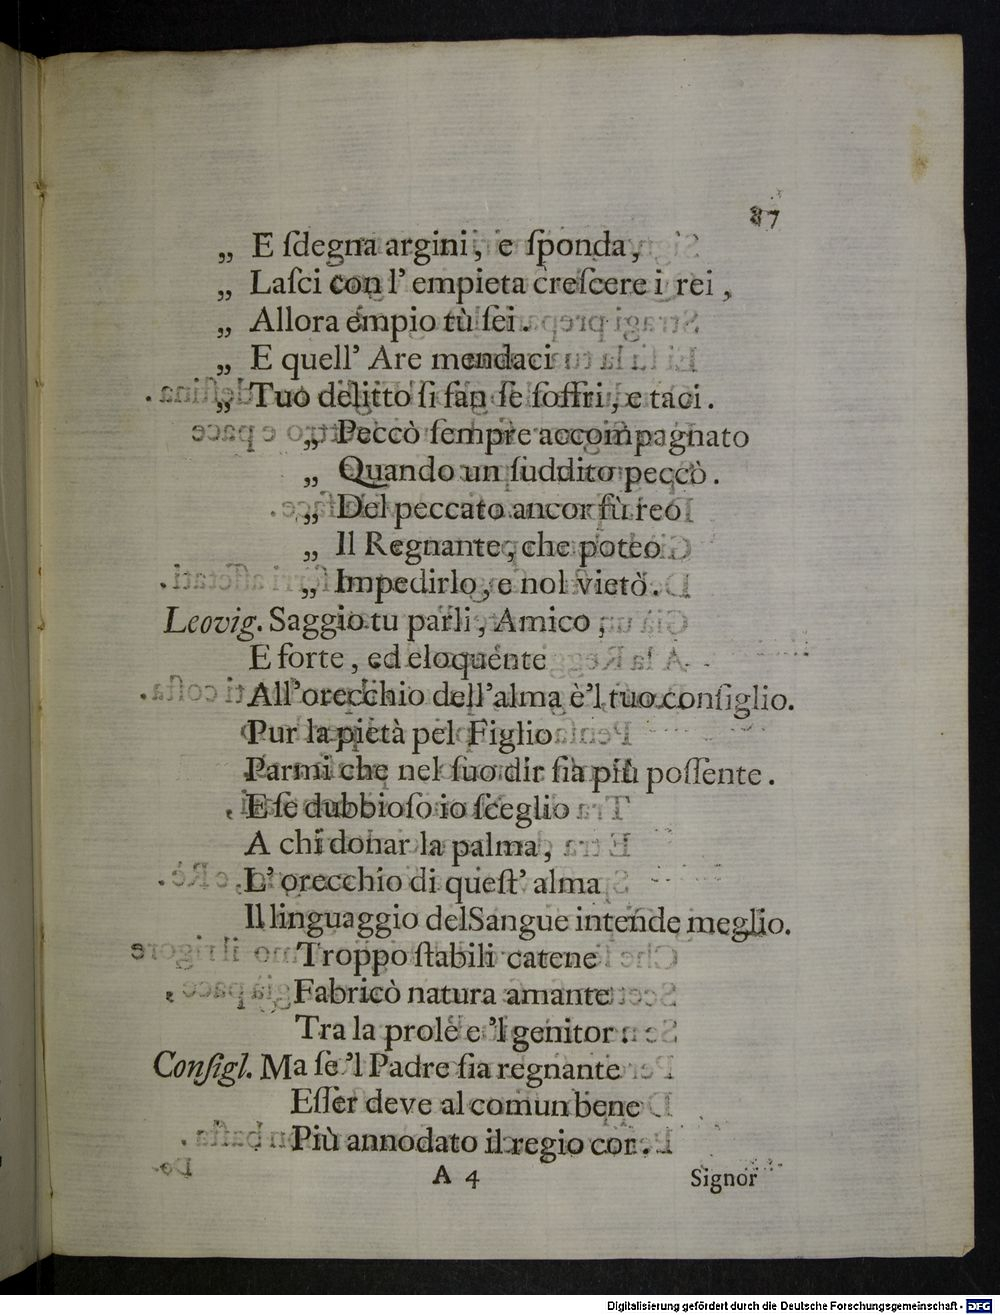 87
„ E ſdegna argini, e ſponda,
„ Laſci con l' empieta creſcere i rei,
„ Allora empio tù ſei.
„ E quell' Are mendaci
„ Tuo delitto ſi fan ſe ſoffri, e taci.
„ Peccò ſempre accompagnato
„ Quando un ſuddito peccò.
„ Del peccato ancor fù reo
„ Il Regnante, che poteo
„ Impedirlo, e nol vietò.
Leovig. Saggio tu parli, Amico,
E forte, ed eloquente
All'orecchio dell'alma è'l tuo conſiglio.
Pur la pietà pel Figlio
Parmi che nel ſuo dir ſia più poſſente.
E ſe dubbioſo io ſceglio
A chi donar la palma,
L' orecchio di queſt' alma
Il linguaggio delSangue intende meglio.
Troppo ſtabili catene
Fabricò natura amante
Tra la prole e 'l genitor.
Conſigl. Ma ſe 'l Padre ſia regnante
Eſſer deve al comun bene
Più annodato il regio cor.
A 4 Signor
Digitalisierung gefördert durch die Deutsche Forschungsgemeinschaft - DFG